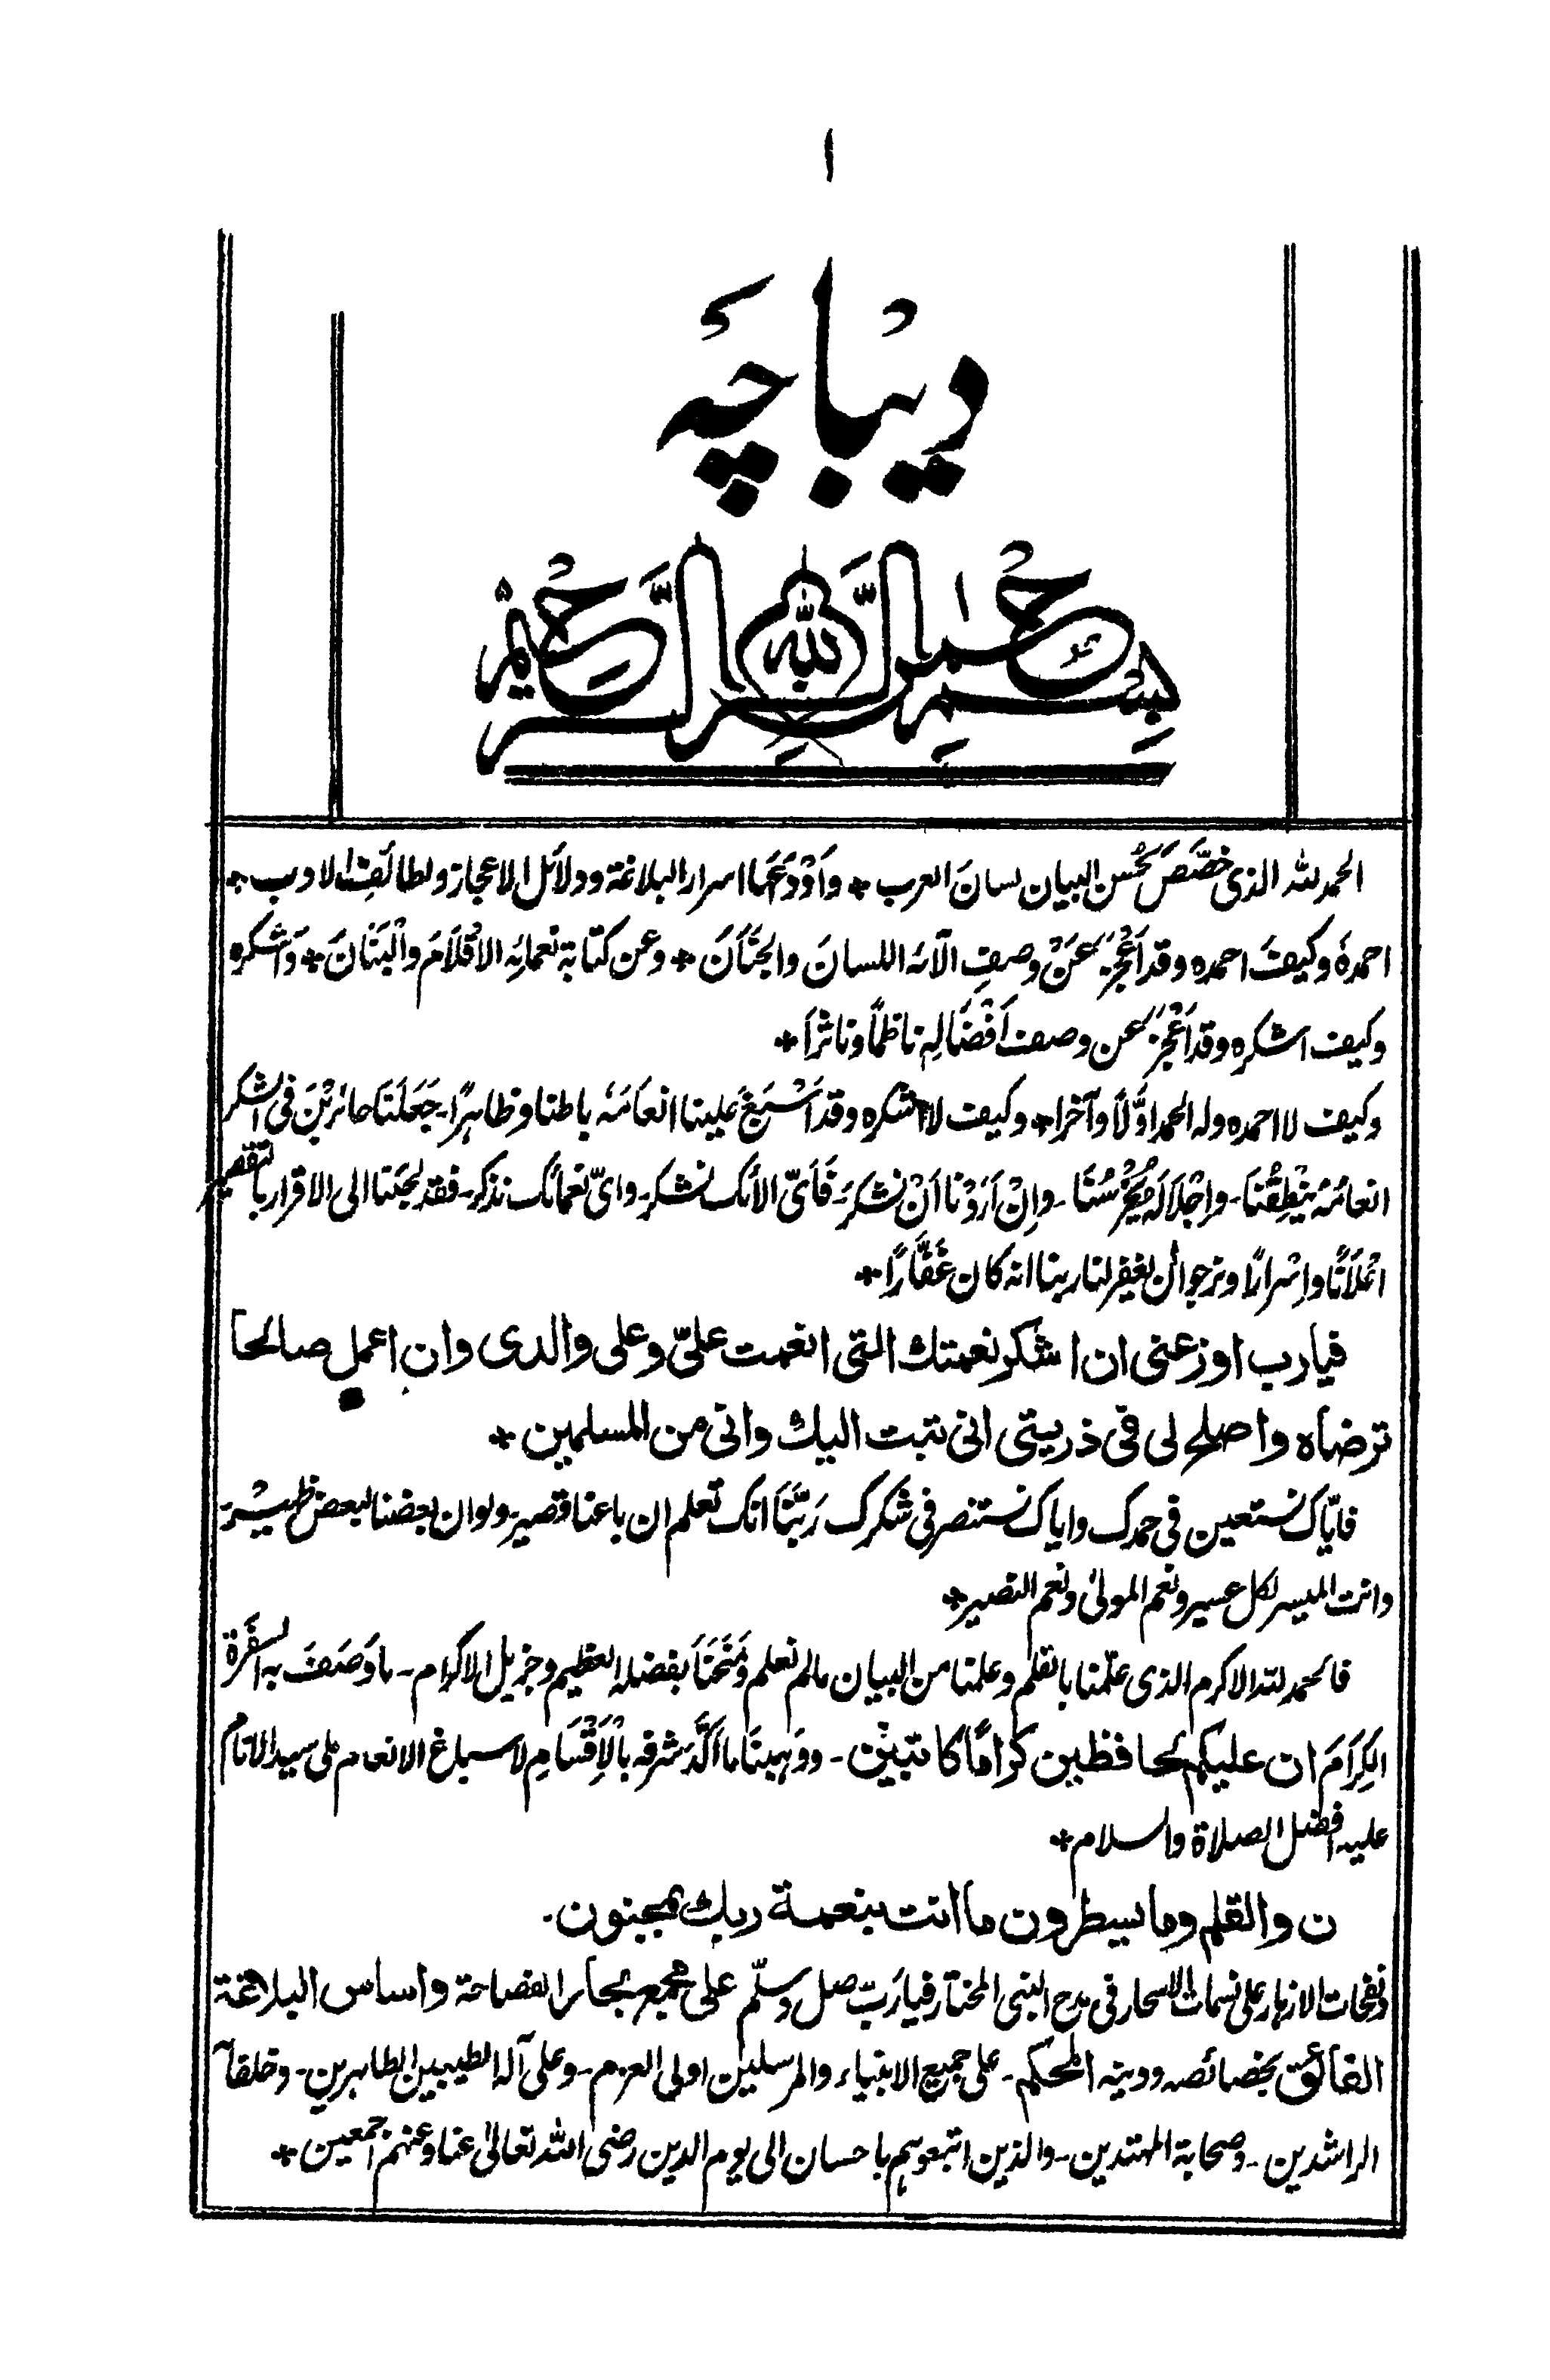 ١
دیباچۂ
بسم الله الرحمن الرحيم
الحمد لله الذى خصَّصَ بحُسن البيان لسانَ العرب * وَاَوْدَعَهَا اسرار البلاغة ودلائل الاعجاز ولطائفَ الادب *
احمدهٗ وكيفَ احمده وقد اَعْجَزَ عَنْ وصفِ آلآئه اللسانَ والجَنَانَ * وعن كتابة نعمائِه الاَقلَامَ والْبَنَانَ * وَاشكره
وكيف اشكره وقد اَعْجَزَ عن وصف اَفْضَالِهٖ ناظمًا وناثرًا *
وكيف لا احمده وله الحمد اوَّلاً وآخرا * وكيف لا اشكره وقد اَسْبَغَ علينا انعامَهٗ باطنا وظاہرًا - جَعَلَنَا حائرِيْنَ فى الشكر
انعامُهٗ يُنْطِقُنَا - واِجْلَالَهٗ يُخْرِسُنَا - واِنْ اَرَدْنَا اَنْ نشكرَ - فَاَىّ الائك نشكر - واىّ نعمائك نذكر - فقد لجئنا الى الاقرار بالتقصير
اعْلَانًا واِسْرارًا ونرجوا أن يغفر لنا ربنا انه كان غَفَّارًا *
فيارب اوزعنى ان اشكر نعمتك التى انعمت علىّ وعلى والدى وان اعمل صالحا
ترضاه واصلح لى فى ذريتى انى تبت اليك وانى من المسلمين *
فايّاك نستعين فى حمدك واياك نستنصر فى شكرك رَبَّنَا انك تعلم ان باعنا قصير ولو ان بعضنا لبعض ظہِيْر -
وانت الميسر لكل عسير ونعم المولىٰ ونعم النصير *
فالحمد لله الاكرم الذى علّمنا بالقلم وعلمنا من البيان مالم نعلم وَمَنَحَنَا بفضله العظيم وجزيل الاكرام - ما وَصَفَ به السفرة
الكِرَامَ ان عليكم لحافظين كرامًا كاتبين - ووہبنَا ما اكَّدَ شرفه بالْاَقْسَامِ لاسباغ الانعام على سيد الانام
عليه افضل الصلاة والسلام *
ن والقلم وما يسطرون ما انت بنعمة ربك بمجنون.
ونفحات الازہار على نسمات الاسحار فى مدح النبى المختار فيا رَبّ صل وسلّم علىٰ مجمع بحار الفصاحة واساس البلاغة
الفائق بخصائصه ودينه المحكم - على جميع الانبياء والمرسلين اولى العزم - وعلى آله الطيبين الطاہرين - وخلفائه
الراشدين - وصحابة المهتدين - والذين اتبعوہم باحسان الى يوم الدين رضى الله تعالىٰ عنا وعنهم اجمعين *